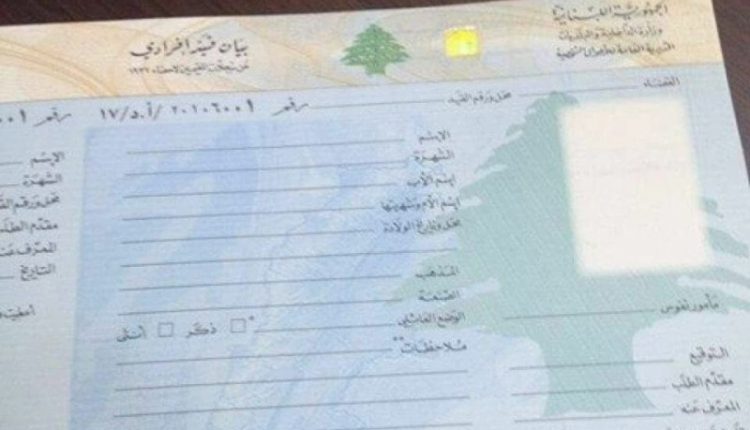 الجمهورية اللبنانية
وزارة الداخلية والبلديات
المديرية العامة للأحوال الشخصية
بيان قيد إفرادي
عن سجلات المقيمين لاحصاء ١٩٣٢
القضاء
محل ورقم القيد
رقم ٢٠١٠٦٠٠١ /أ.د/ ١٧
الإسم
الشهرة
إسم الأب
إسم الأم وشهرتها
محل وتاريخ الولادة
المذهب
الصنعة
الوضع العائلي
* ذكر أنثى
ملاحظات**
مأمور نفوس
التوقيع
مقدم الطلب
المعرف عنه
رقم ٠٠١
الإسم
الشهرة
محل ورقم
مقدم الطلب
المعرف عنه
التاريخ